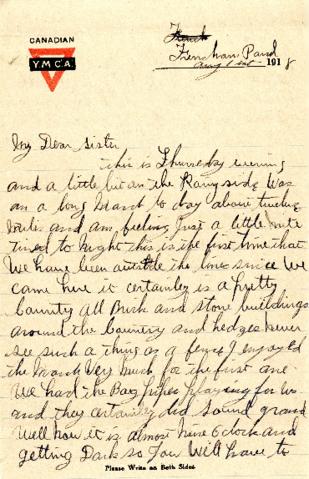 CANADIAN
Y.M.C.A.
French
Frensham Pond
Aug 1st 1918
My Dear Sister
This is Thursday evening
and a little bit on the Rainy side Was
on a long March to day above twelve
miles and am feeling Just a little mite
tired to Night this is the first time that
We have been outside the lines since We
came here it certainley is a pretty
Country all Brick and stone buildings
around the Country and hedges never
see such a thing as a fence I enjoyed
the March Very Much for the first one
We had the Bag pipes playing for us
and they certainley did sound grand
Well now it is almost Nine O clock and
getting Dark so You Will have to
Please Write on Both Sides